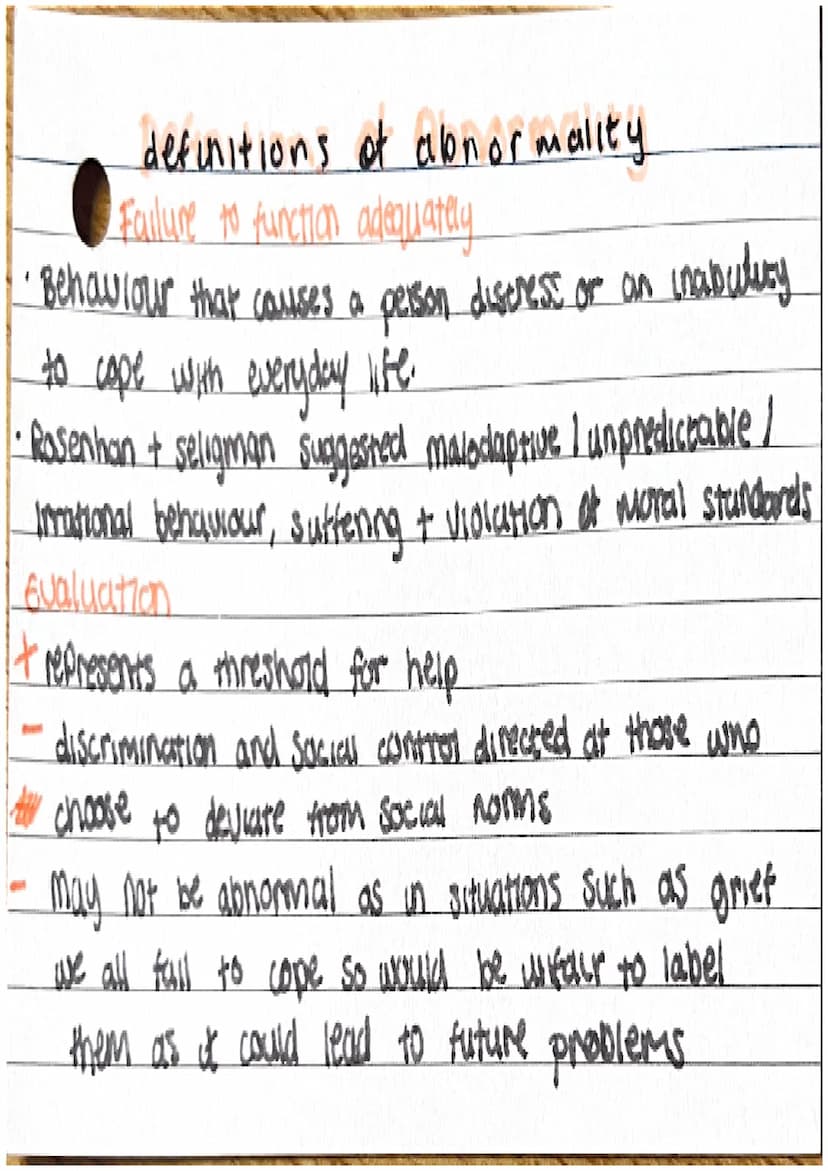 definitions of abnormality
Failure to function adequately
· Behaviour that causes a person distress or an inability
to cope with everyday life.
· Rosenhan + seligman suggested maladaptive / unpredictable /
Irrational behaviour, suffering + violation of moral standards
Evaluation
+ represents a threshold for help
- discrimination and social control directed at those who
choose to deviate from social norms
- may not be abnormal as in situations such as grief
we all fail to cope so would be unfair to label
them as it could lead to future problems